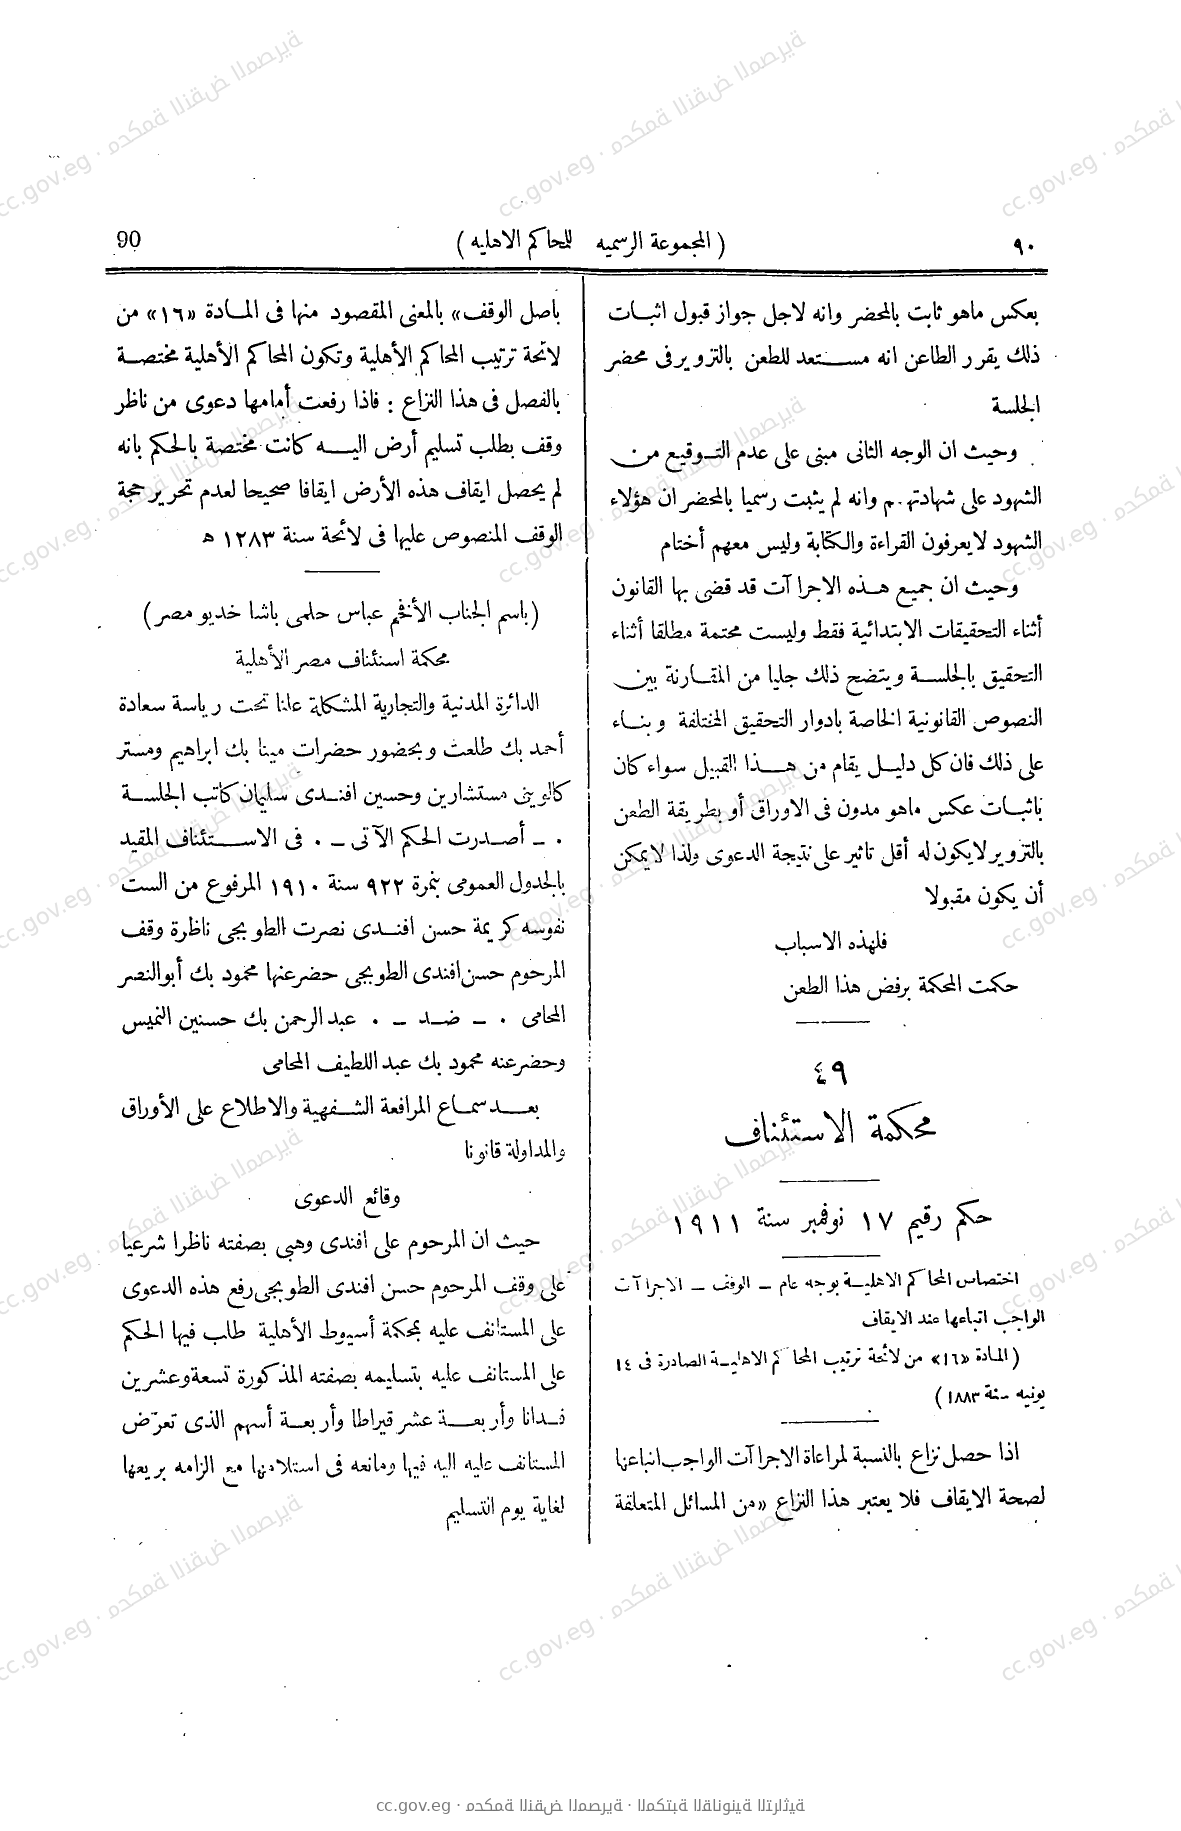 ٩٠
( المجموعة الرسميه للمحاكم الاهليه )
90
بعكس ماهو ثابت بالمحضر وانه لاجل جواز قبول اثبات
ذلك يقرر الطاعن انه مستعد للطعن بالتزوير فى محضر
الجلسة
وحيث ان الوجه الثانى مبنى على عدم التوقيع من
الشهود على شهادتهم وانه لم يثبت رسميا بالمحضر ان هؤلاء
الشهود لايعرفون القراءة والكتابة وليس معهم أختام
وحيث ان جميع هذه الاجراآت قد قضى بها القانون
أثناء التحقيقات الابتدائية فقط وليست محتمة مطلقا أثناء
التحقيق بالجلسة ويتضح ذلك جليا من المقارنة بين
النصوص القانونية الخاصة بادوار التحقيق المختلفة وبناء
على ذلك فان كل دليل يقام من هذا القبيل سواء كان
باثبات عكس ماهو مدون فى الاوراق أو بطريقة الطعن
بالتزوير لايكون له أقل تاثير على نتيجة الدعوى ولذا لايمكن
أن يكون مقبولا
فلهذه الاسباب
حكمت المحكمة برفض هذا الطعن
٤٩
محكمة الاستئناف
حكم رقيم ١٧ نوفمبر سنة ١٩١١
اختصاص المحاكم الاهلية بوجه عام - الوقف - الاجراآت
الواجب اتباعها عند الايقاف
( المادة «١٦» من لائحة ترتيب المحاكم الاهلية الصادرة فى ١٤
يونيه سنة ١٨٨٣ )
اذا حصل نزاع بالنسبة لمراعاة الاجراآت الواجب اتباعها
لصحة الايقاف فلا يعتبر هذا النزاع «من المسائل المتعلقة
باصل الوقف» بالمعنى المقصود منها فى المادة «١٦» من
لائحة ترتيب المحاكم الأهلية وتكون المحاكم الأهلية مختصة
بالفصل فى هذا النزاع : فاذا رفعت أمامها دعوى من ناظر
وقف بطلب تسليم أرض اليه كانت مختصة بالحكم بانه
لم يحصل ايقاف هذه الأرض ايقافا صحيحا لعدم تحرير حجة
الوقف المنصوص عليها فى لائحة سنة ١٢٨٣ ه
(باسم الجناب الأفخم عباس حلمى باشا خديو مصر)
محكمة استئناف مصر الأهلية
الدائرة المدنية والتجارية المشكلة علنا تحت رياسة سعادة
أحمد بك طلعت وبحضور حضرات مينا بك ابراهيم ومستر
كالوينى مستشارين وحسين افندى سليمان كاتب الجلسة
٠ - أصدرت الحكم الآتى - ٠ فى الاستئناف المقيد
بالجدول العمومى بنمرة ٩٢٢ سنة ١٩١٠ المرفوع من الست
نفوسه كريمة حسن افندى نصرت الطوبجى ناظرة وقف
المرحوم حسن افندى الطوبجى حضر عنها محمود بك أبوالنصر
المحامى ٠ - ضد - ٠ عبد الرحمن بك حسنين النميس
وحضر عنه محمود بك عبد اللطيف المحامى
بعد سماع المرافعة الشفهية والاطلاع على الأوراق
والمداولة قانونا
وقائع الدعوى
حيث ان المرحوم على افندى وهبى بصفته ناظرا شرعيا
على وقف المرحوم حسن افندى الطوبجى رفع هذه الدعوى
على المستانف عليه بمحكمة أسيوط الأهلية طلب فيها الحكم
على المستانف عليه بتسليمه بصفته المذكورة تسعة وعشرين
فدانا وأربعة عشر قيراطا وأربعة أسهم الذى تعرّض
المستانف عليه اليه فيها ومانعه فى استلامها مع الزامه بريعها
لغاية يوم التسليم
cc.gov.eg · محكمة النقض المصرية · المكتبة القانونية التراثية